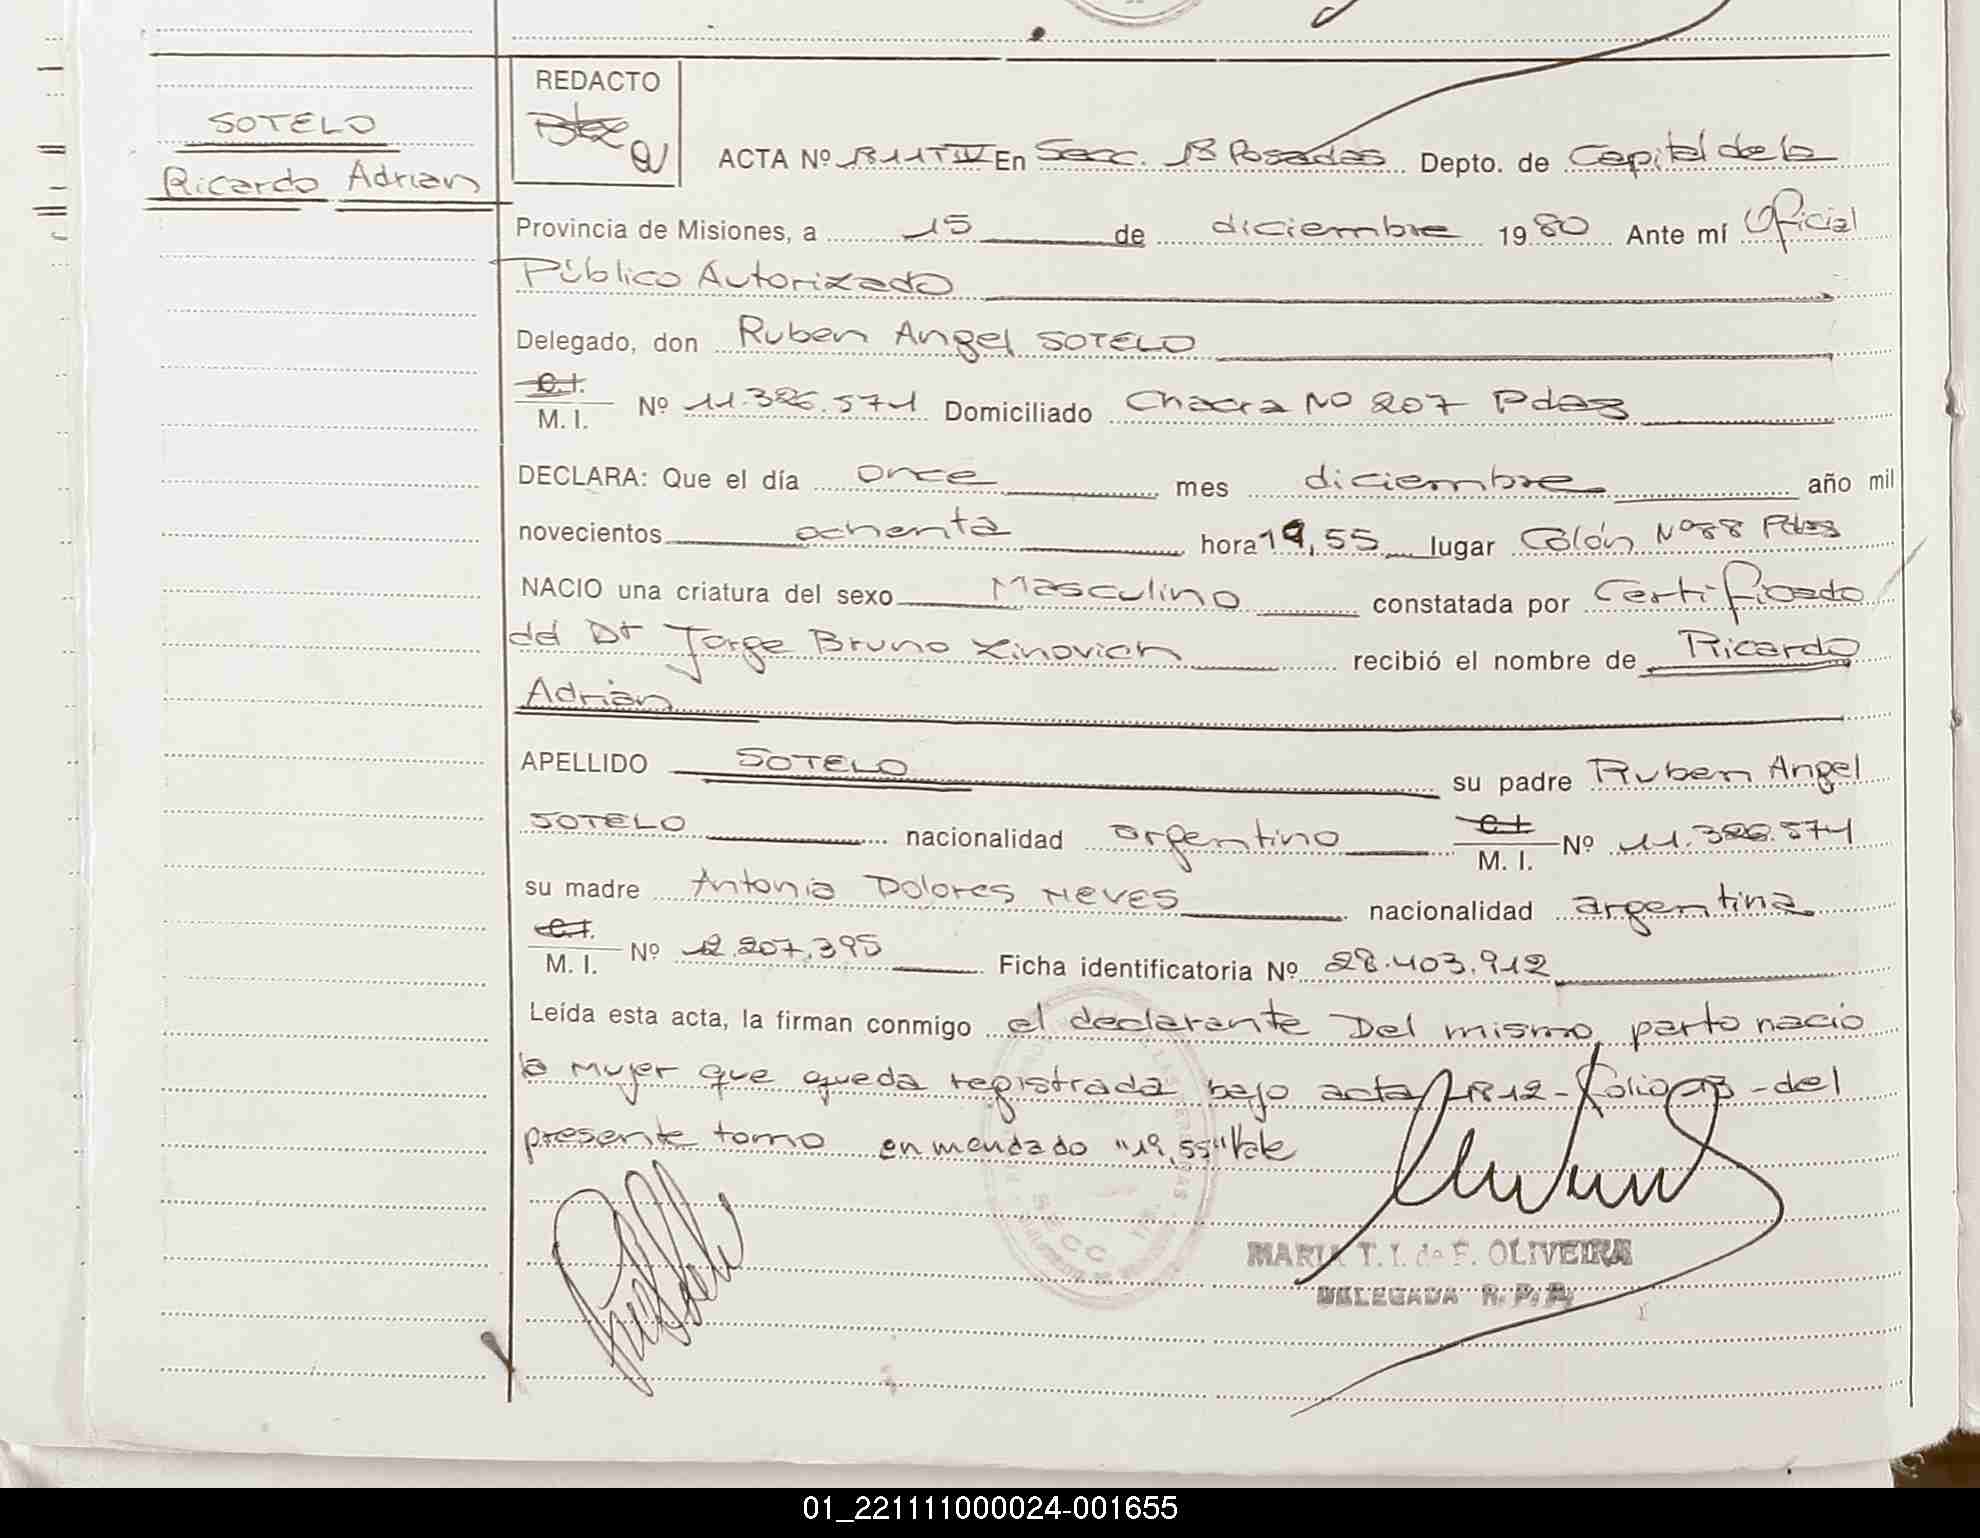 SOTELO
Ricardo Adrian
REDACTO
ACTA Nº 1811 T IV En Secc. 1ª Posadas Depto. de Capital de la
Provincia de Misiones, a 15 de diciembre 1980 Ante mí Oficial
Público Autorizado
Delegado, don Ruben Angel SOTELO
C.I.
M. I. Nº 11.386.571 Domiciliado Chacra Nº 207 Pdas
DECLARA: Que el día once mes diciembre año mil
novecientos ochenta hora 19,55 lugar Colón Nº 88 Pdas
NACIO una criatura del sexo Masculino constatada por Certificado
del Dr Jorge Bruno Zinovich recibió el nombre de Ricardo
Adrian
APELLIDO SOTELO su padre Ruben Angel
SOTELO nacionalidad argentino C.I.
M. I. Nº 11.386.571
su madre Antonia Dolores NEVES nacionalidad argentina
C.I.
M. I. Nº 12.207.395 Ficha identificatoria Nº 28.403.912
Leída esta acta, la firman conmigo el declarante Del mismo parto nacio
la mujer que queda registrada bajo acta 1812 - folio - del
presente tomo enmendado "19,55" Vale
SECC.
MARIA T. I. de F. OLIVEIRA
DELEGADA R. P. P.
01_221111000024-001655